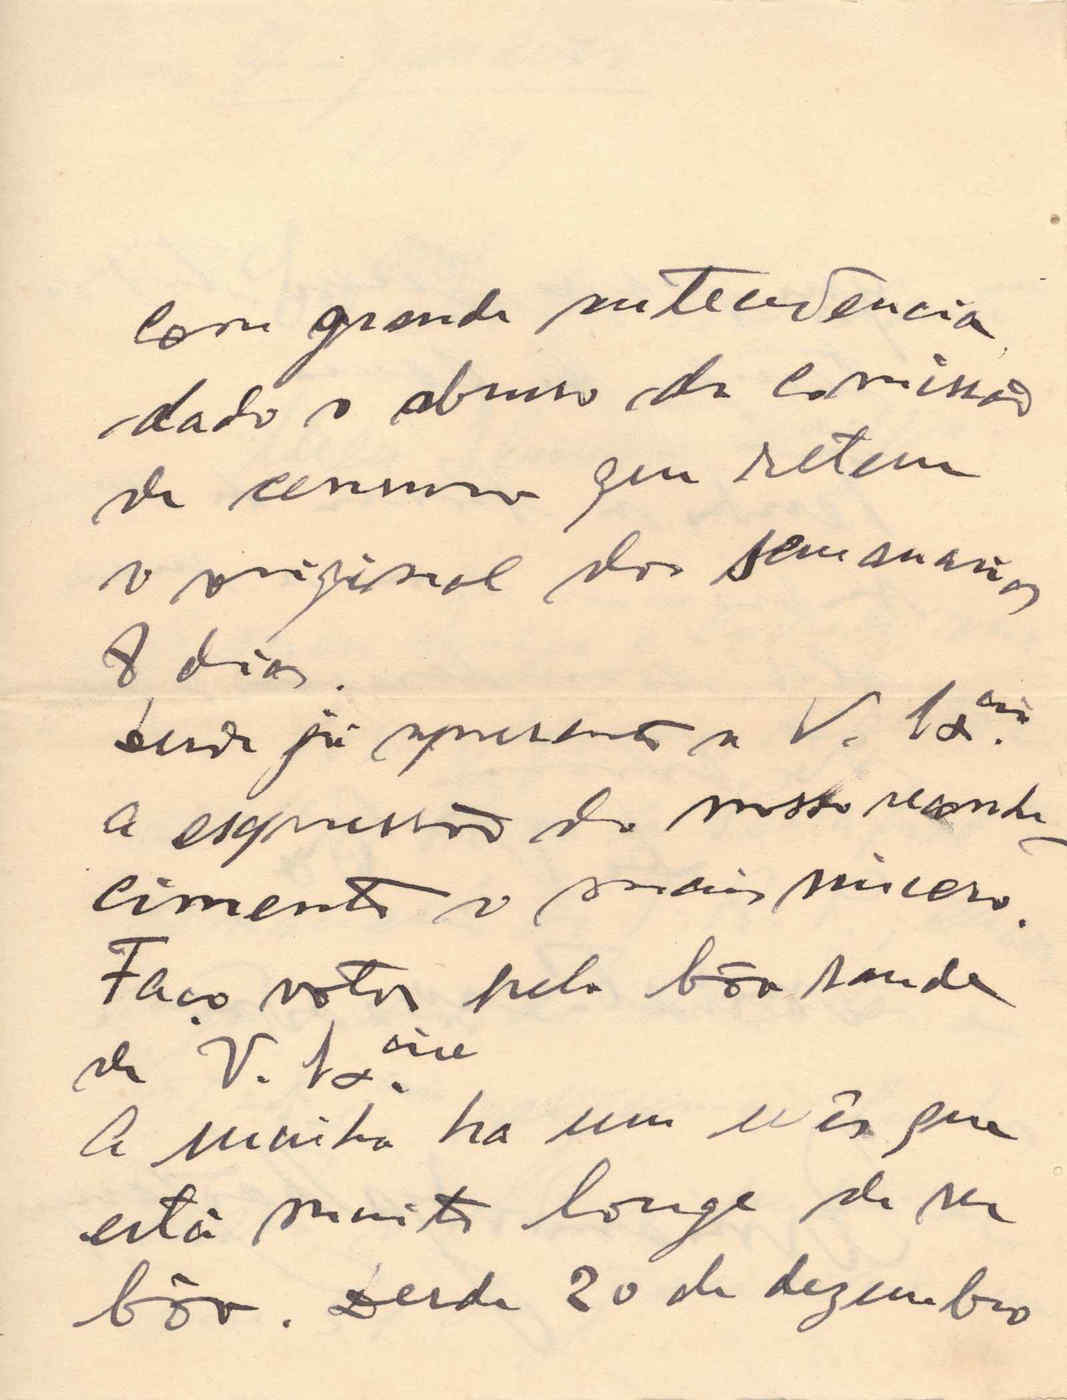 com grande antecedencia,
dado o abuso da comissão
de censura que retem
o original dos semanarios
8 dias.
Desde já apresento a V. Ex.cia
a expressão do nosso reconhe-
cimento o mais sincero.
Faço votos pela bôa saude
de V. Ex.cia
A minha ha um mês que
está muito longe de ser
bôa. Desde 20 de dezembro